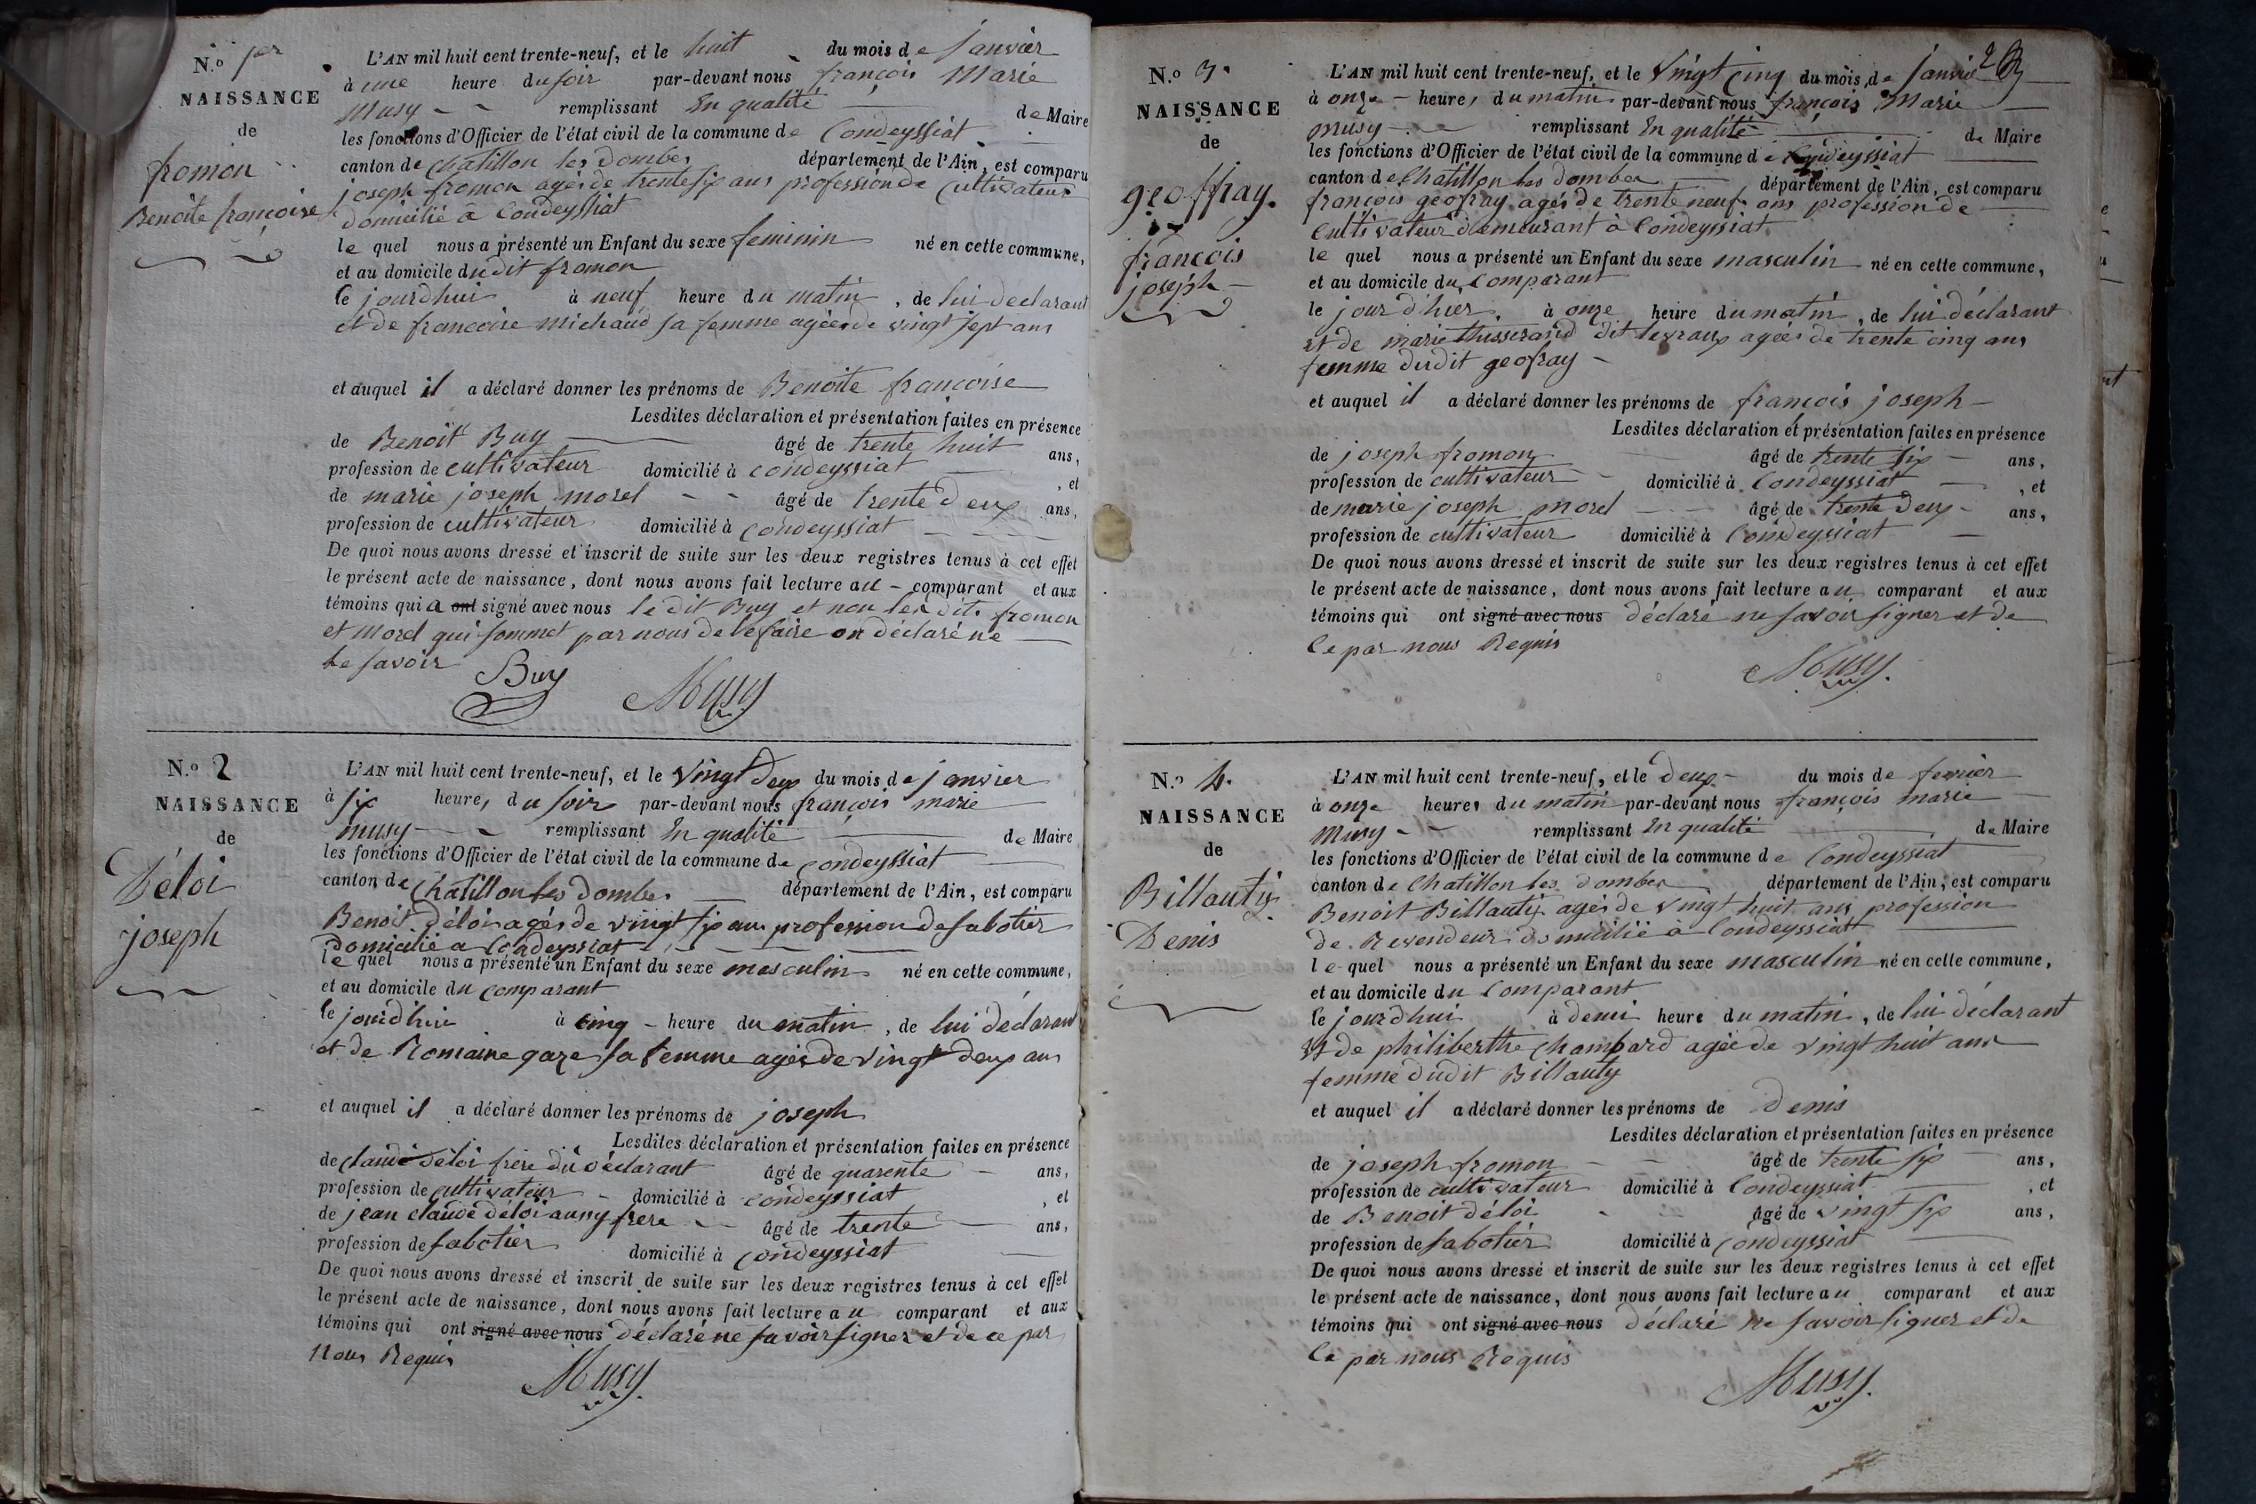 N.º 1er
NAISSANCE
de
fromon
Benoite françoise
L'AN mil huit cent trente-neuf, et le huit du mois de janvier
à une heure du soir par-devant nous françois Marie
Musy remplissant En qualité de Maire
les fonctions d'Officier de l'état civil de la commune de Condeyssiat
canton de Chatillon les dombes département de l'Ain, est comparu
joseph fromon agés de trente six ans profession de Cultivateur
domicilié à Condeyssiat
le quel nous a présenté un Enfant du sexe feminin né en cette commune,
et au domicile dudit fromon
le jourdhui à neuf heure du matin, de lui déclarant
et de francoise michaud sa femme agées de vingt sept ans
et auquel il a déclaré donner les prénoms de Benoite françoise
Lesdites déclaration et présentation faites en présence
de Benoit Buy âgé de trente huit ans,
profession de cultivateur domicilié à condeyssiat , et
de marie joseph morel âgé de trente deux ans,
profession de cultivateur domicilié à condeyssiat
De quoi nous avons dressé et inscrit de suite sur les deux registres tenus à cet effet
le présent acte de naissance, dont nous avons fait lecture au comparant et aux
témoins qui a ont signé avec nous le dit Buy et non les dits fromon
et Morel qui sommet par nous de le faire on déclaré ne
le savoir
Buy Musy
N.º 2
NAISSANCE
de
Déloi
joseph
L'AN mil huit cent trente-neuf, et le vingt deux du mois de janvier
à six heures du soir par-devant nous françois marie
musy remplissant En qualité de Maire
les fonctions d'Officier de l'état civil de la commune de condeyssiat
canton de Chatillon les dombes département de l'Ain, est comparu
Benoit Déloi agés de vingt six ans profession de sabotier
domicilié a Condeyssiat
le quel nous a présenté un Enfant du sexe masculin né en cette commune,
et au domicile du comparant
le jourdhui à cinq heure du matin, de lui déclarant
et de Romaine gaze sa femme agés de vingt deux ans
et auquel il a déclaré donner les prénoms de joseph
Lesdites déclaration et présentation faites en présence
de claude déloi frère du déclarant âgé de quarente ans,
profession de cultivateur domicilié à condeyssiat , et
de jean claude déloi aussy frere âgé de trente ans,
profession de sabotier domicilié à condeyssiat
De quoi nous avons dressé et inscrit de suite sur les deux registres tenus à cet effet
le présent acte de naissance, dont nous avons fait lecture au comparant et aux
témoins qui ont signé avec nous déclaré ne savoir signer et de ce par
nous Requis
Musy
N.º 3.
NAISSANCE
de
geoffray.
françois
joseph
L'AN mil huit cent trente-neuf, et le Vingt Cinq du mois de janvier
à onze heures du matin par-devant nous françois Marie
musy remplissant En qualité de Maire
les fonctions d'Officier de l'état civil de la commune de Condeyssiat
canton de Chatillon les dombes département de l'Ain, est comparu
françois geofray agés de trente neuf ans profession de
cultivateur demeurant à Condeyssiat
le quel nous a présenté un Enfant du sexe masculin né en cette commune,
et au domicile du Comparant
le jour d'hier à onze heure du matin, de lui déclarant
et de marie thisserand dit levraux agées de trente cinq ans
femme dudit geofray
et auquel il a déclaré donner les prénoms de françois joseph
Lesdites déclaration et présentation faites en présence
de joseph fromon âgé de trente six ans,
profession de cultivateur domicilié à Condeyssiat , et
de marie joseph morel âgé de trente deux ans,
profession de cultivateur domicilié à Condeyssiat
De quoi nous avons dressé et inscrit de suite sur les deux registres tenus à cet effet
le présent acte de naissance, dont nous avons fait lecture au comparant et aux
témoins qui ont signé avec nous déclaré ne savoir signer et de
Ce par nous Requis
Musy.
N.º 4.
NAISSANCE
de
Billautix
Denis
L'AN mil huit cent trente-neuf, et le deux du mois de fevrier
à onze heures du matin par-devant nous françois marie
Musy remplissant En qualité de Maire
les fonctions d'Officier de l'état civil de la commune de Condeyssiat
canton de Chatillon les dombes département de l'Ain, est comparu
Benoit Billautix agés de vingt huit ans profession
de Revendeur domicilié a Condeyssiat
le quel nous a présenté un Enfant du sexe masculin né en cette commune,
et au domicile du Comparant
le jourdhui à demi heure du matin, de lui déclarant
et de philiberthe Chambard agée de vingt huit ans
femme dudit Billauty
et auquel il a déclaré donner les prénoms de Denis
Lesdites déclaration et présentation faites en présence
de joseph fromon âgé de trente six ans,
profession de cultivateur domicilié à Condeyssiat , et
de Benoit déloi âgé de vingt six ans,
profession de sabotier domicilié à Condeyssiat
De quoi nous avons dressé et inscrit de suite sur les deux registres tenus à cet effet
le présent acte de naissance, dont nous avons fait lecture au comparant et aux
témoins qui ont signé avec nous déclaré ne savoir signer et de
Ce par nous Requis
Musy.